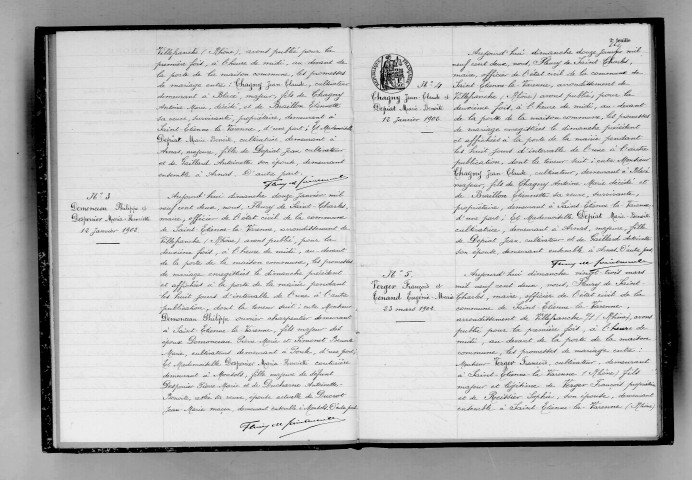 Villefranche (Rhône), avons publié pour la
première fois, à l'heure de midi, au devant de
la porte de la maison commune, les promesses
de mariage entre : Chagny Jean Claude, cultivateur
demeurant à Blacé, majeur, fils de Chagny
Antoine Marie, décédé, et de Braillon Etiennette
sa veuve, survivante, propriétaire, demeurant à
Saint Etienne la Varenne, d'une part; Et Mademoiselle
Depiat Marie Benoite, cultivatrice, demeurant à
Arnas, majeure, fille de Depiat Jean, cultivateur
et de Vaillard Antoinette son épouse, demeurant
ensemble à Arnas. D'autre part.
N° 3
Demonceau Philippe et
Desponier Marie-Henriette
12 Janvier 1902
Aujourd'hui dimanche douze janvier mil
neuf cent deux, nous, Fleury de Saint Charles,
maire, officier de l'état civil de la commune
de Saint Etienne la Varenne, arrondissement de
Villefranche, (Rhône) avons publié, pour la
deuxième fois, à l'heure de midi, au devant
de la porte de la maison commune, les promesses
de mariage enregistrées le dimanche précédent
et affichées à la porte de la mairie pendant
les huit jours d'intervalle de l'une à l'autre
publication, dont la teneur suit : entre Monsieur
Demonceau Philippe ouvrier charpentier demeurant
à Saint Etienne la Varenne, fils majeur des
époux Demonceau Pierre Marie et
Marie, cultivateurs demeurant à d'une part;
Et Mademoiselle Desponier Marie Henriette couturière
demeurant à fille majeure de défunt
Desponier Pierre Marie et de Ducharne Antoinette
sa veuve, épouse actuelle de Ducrot
Jean Marie maçon, demeurant ensemble à D'autre part
2e feuille
N° 4
Chagny Jean Claude et
Depiat Marie Benoite
12 Janvier 1902
Aujourd'hui dimanche douze janvier mil
neuf cent deux, nous, Fleury de Saint Charles,
maire, officier de l'état civil de la commune de
Saint Etienne la Varenne, arrondissement de
Villefranche, (Rhône) avons publié pour la
deuxième fois, à l'heure de midi, au devant
de la porte de la maison commune, les promesses
de mariage enregistrées le dimanche précédent
et affichées à la porte de la mairie pendant
les huit jours d'intervalle de l'une à l'autre
publication, dont la teneur suit : entre Monsieur
Chagny Jean Claude, cultivateur, demeurant à Blacé
majeur, fils de Chagny Antoine Marie décédé et
de Braillon Etiennette sa veuve, survivante,
propriétaire, demeurant à Saint Etienne la Varenne,
d'une part; Et Mademoiselle Depiat Marie Benoite,
cultivatrice, demeurant à Arnas, majeure, fille
de Depiat Jean, cultivateur et de Vaillard Antoinette
son épouse, demeurant ensemble à Arnas. D'autre part.
N° 5
Verger François et
Eugénie Maria
23 mars 1902
Aujourd'hui dimanche vingt trois mars
mil neuf cent deux, nous, Fleury de Saint
Charles, maire, officier de l'état civil de la
commune de Saint Etienne la Varenne,
arrondissement de Villefranche (Rhône), avons
publié pour la première fois, à l'heure de
midi, au devant de la porte de la maison
commune, les promesses de mariage entre :
Monsieur Verger François, cultivateur, demeurant
à Saint Etienne la Varenne (Rhône) fils
majeur et légitime de Verger François propriétaire
et de Sophie, son épouse, demeurant
ensemble à Saint Etienne la Varenne (Rhône)